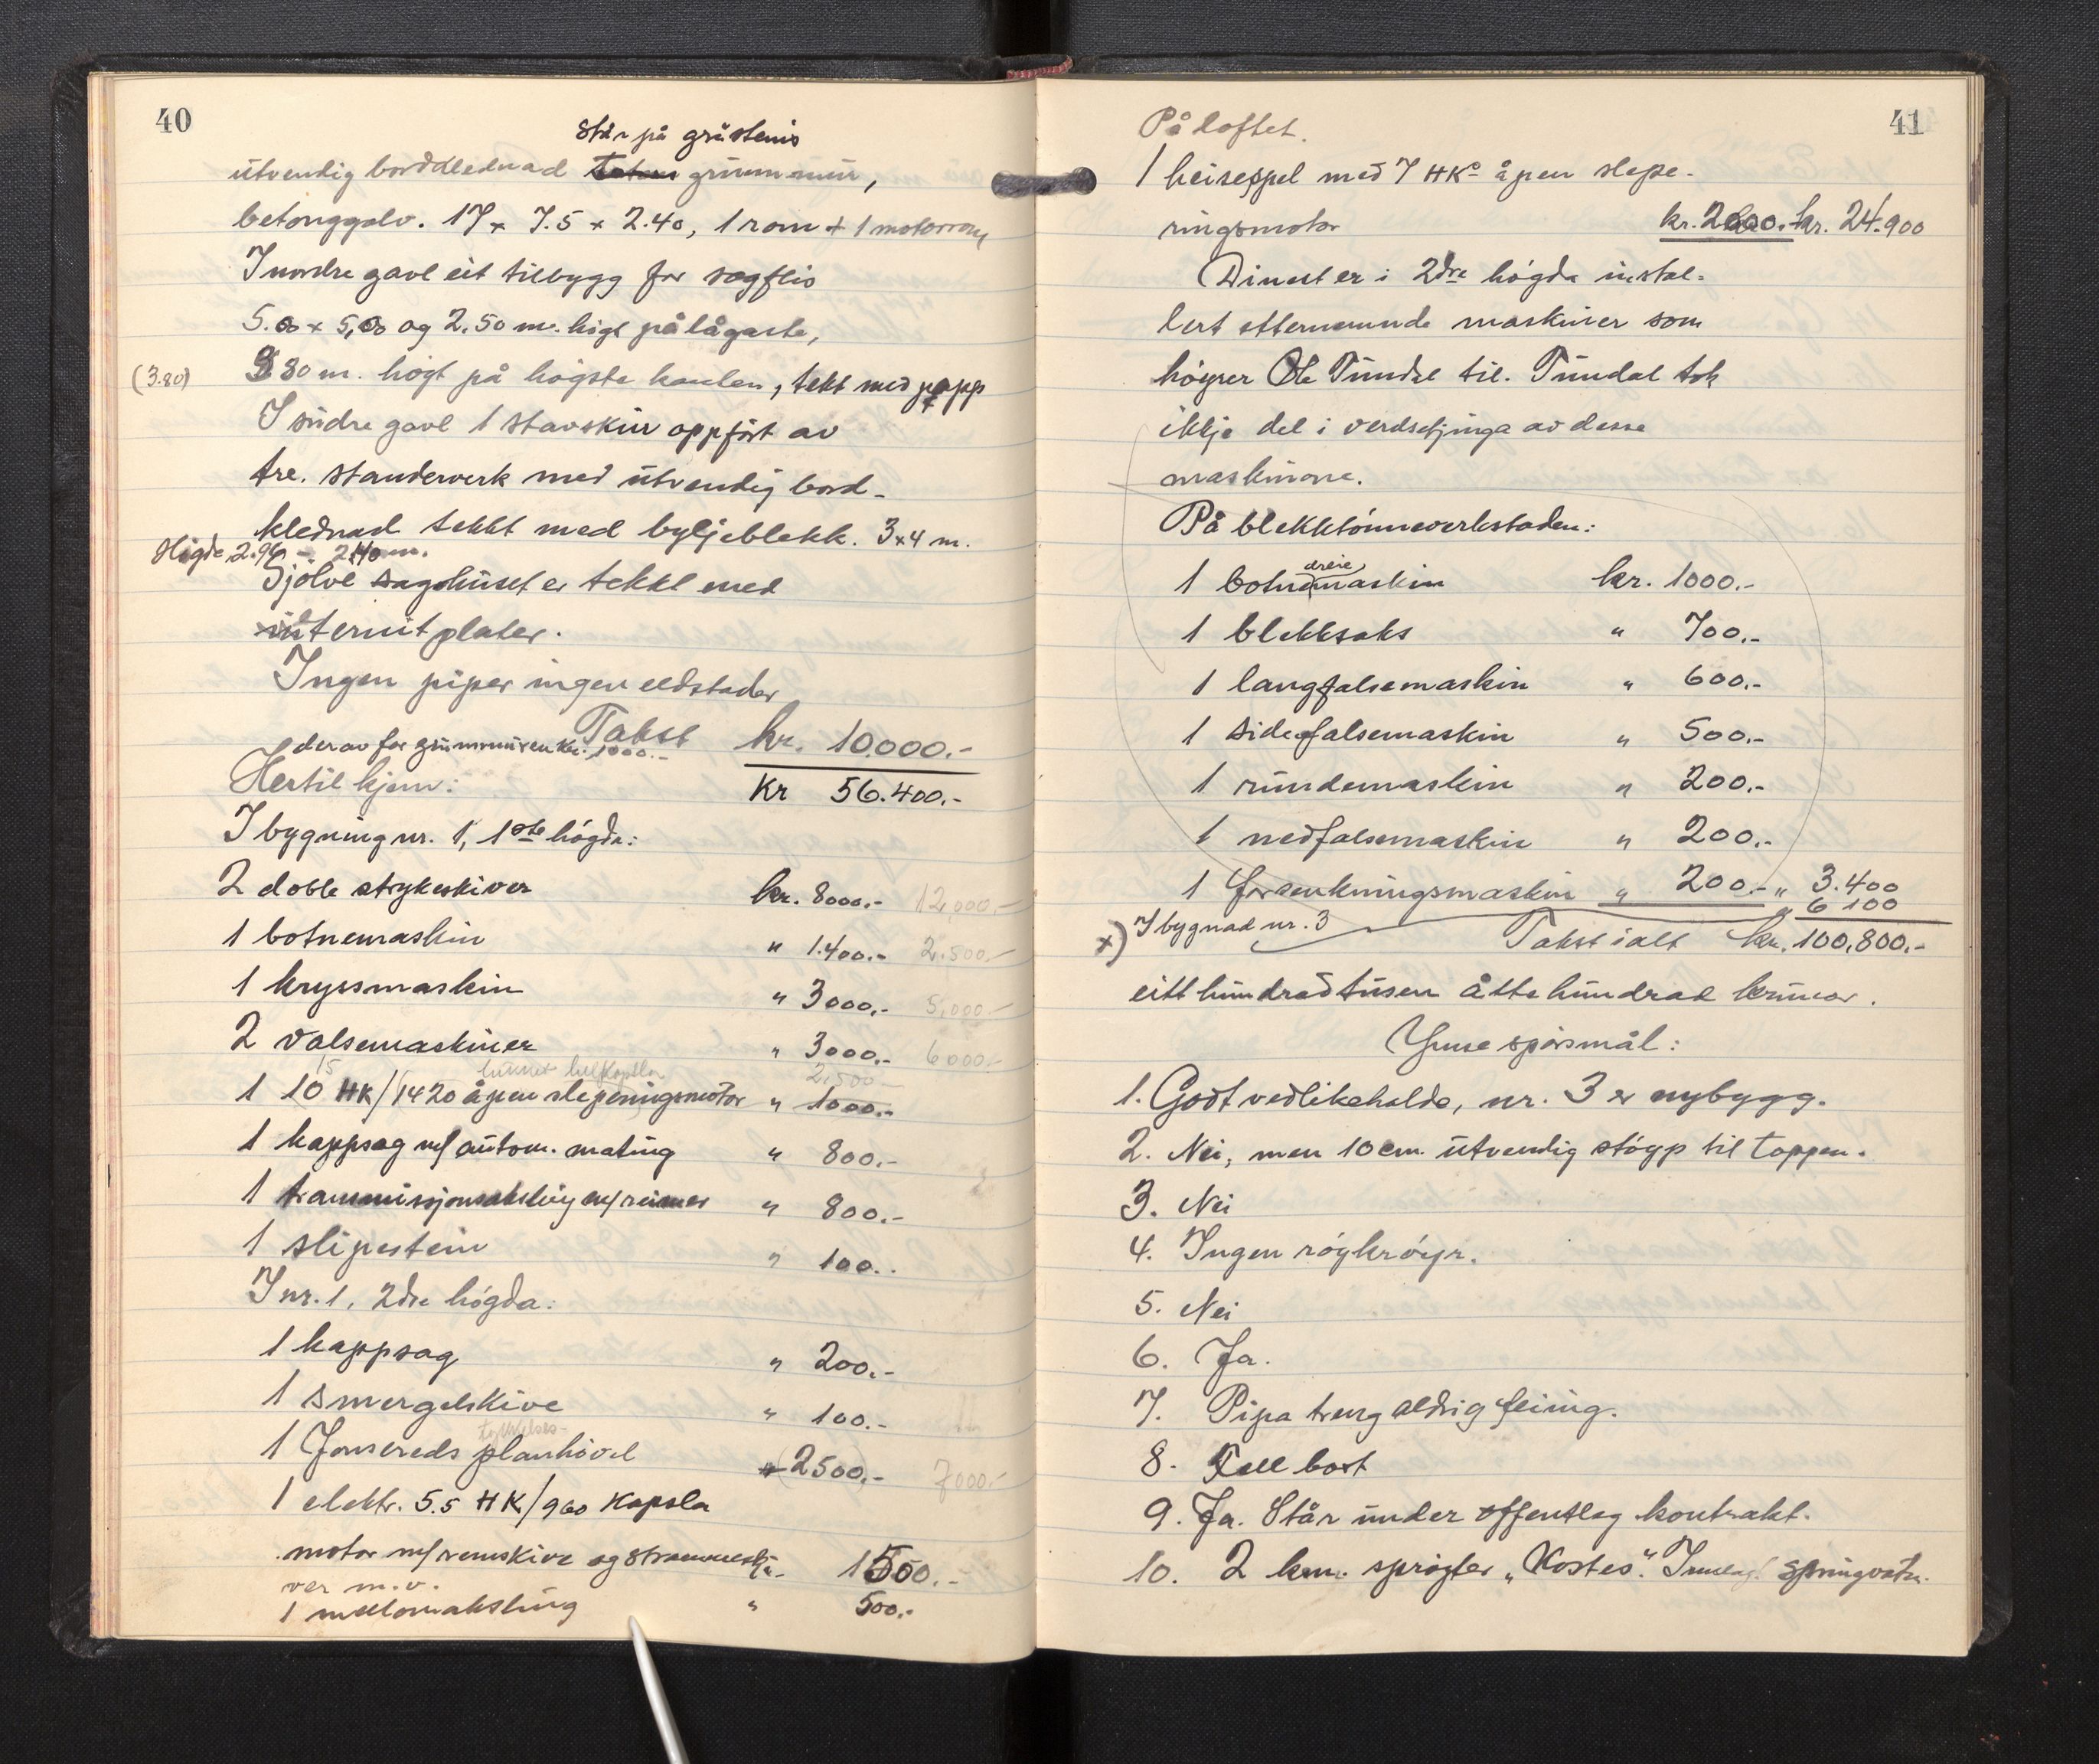 40
står på gråsteins
utvendig bordklednad grunnmur,
betonggolv. 17 x 7.5 x 2.40, 1 rom + 1 motorrom
I nordre gavl eit tilbygg for sagflis
5.00 x 5,00 og 2.50 m. högt på lågaste,
(3.80) 3 80 m. högt på högste kanten, tekt med papp
I sudre gavl 1 stavskur oppfört av
tre. standerverk med utvendig bord-
klednad tekkt med bylgjeblekk. 3x4 m.
Högde 2.90 - 2.40 m.
Sjölve sagahuset er tekkt med
internitplater.
Ingen piper ingen eldstader
Takst kr. 10.000.-
derav for grunnmuren kr. 1000.-
Hertil kjem: Kr 56.400.-
I bygning nr. 1, 1ste högda:
2 doble strykeskiver kr. 8000.- 12,000.-
1 botnemaskin " 1.400.- 2.500.-
1 kryssmaskin " 3000.- 5,000.-
2 valsemaskiner " 3000.- 6000.-
15 2,500
1 10 HK/1420 åpen sleperingsmotor " 1000.-
1 kappsag m/ autom. mating " 800.-
1 transmisjonsaksling m/ reimer " 800.-
1 slipestein " 100..
I nr. 1, 2dre högda:
1 kappsag " 200.-
1 smergelskive " 100.-
tykkelses-
1 Jonsereds planhövel " (2500.- 7000.-
1 elektr. 5.5 HK/960 kapsla
motor m/ remskive og strammeski-
ver m.v. 1500.-
1 mellomaksling " 500.-
41
På loftet.
1 heisespel med 7 HKs åpen slepe-
ringsmotor kr. 2000.- kr. 24.900
Dinest er i 2dre högda instal-
lert etternemnde maskiner som
höyrer Ole Tundal til. Tundal tok
ikkje del i verdsetjinga av desse
maskinone.
På blekktönneverkstaden:
dreie
1 botnemaskin kr. 1000.-
1 blekksaks " 700.-
1 langfalsemaskin " 600.-
1 sidefalsemaskin " 500.-
1 rundemaskin " 200.-
1 nedfalsemaskin " 200.-
1 forsenkningsmaskin " 200.- " 3.400
x) I bygnad nr. 3 " 6 100
Takst ialt kr. 100,800.-
eitt hundrad tusen åtte hundrad krunor.
Ymse spörsmål:
1. Godt vedlikehalde, nr. 3 er nybygg.
2. Nei, men 10 cm. utvendig stöyp til toppen.
3. Nei
4. Ingen röykröyr.
5. Nei
6. Ja.
7. Pipa treng aldrig feiing.
8. Fell bort
9. Ja. Står under offentleg kontrakt.
10. 2 km. spröyter „Kostes". Innlag. springvatn.